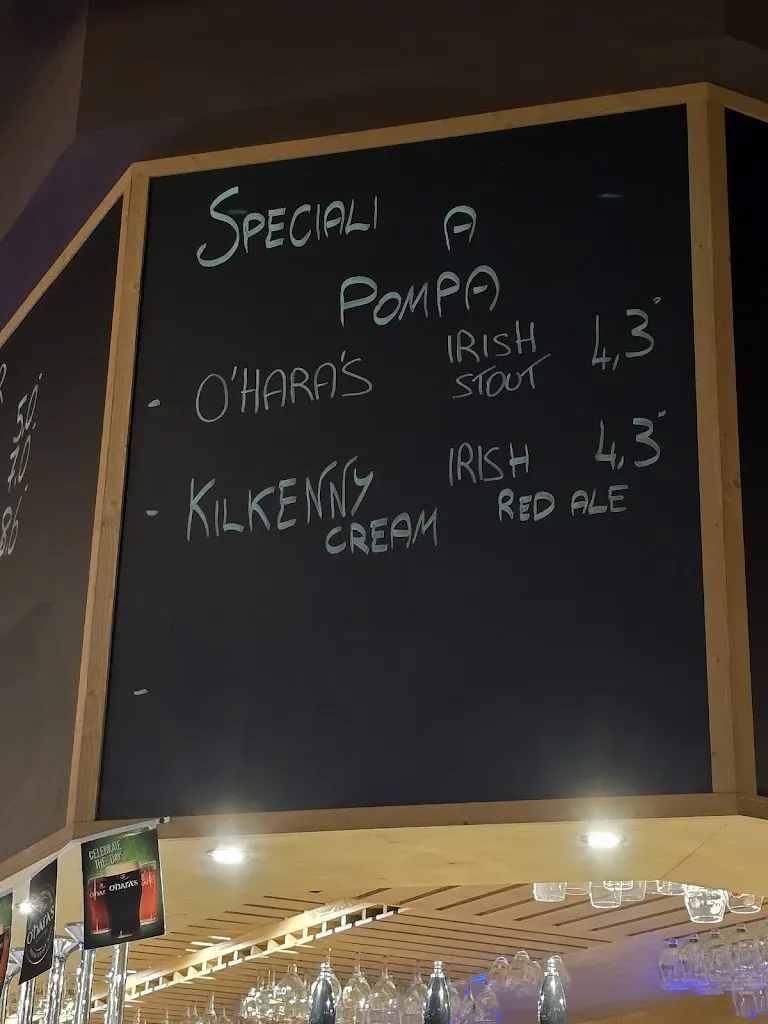 SPECIALI A
POMPA
- O'HARA'S IRISH STOUT 4,3°
- KILKENNY CREAM IRISH RED ALE 4,3°
-
R
5,0°
7,0°
8,6°
CELEBRATE
THE DAY
O'HARA'S
O'HARA'S